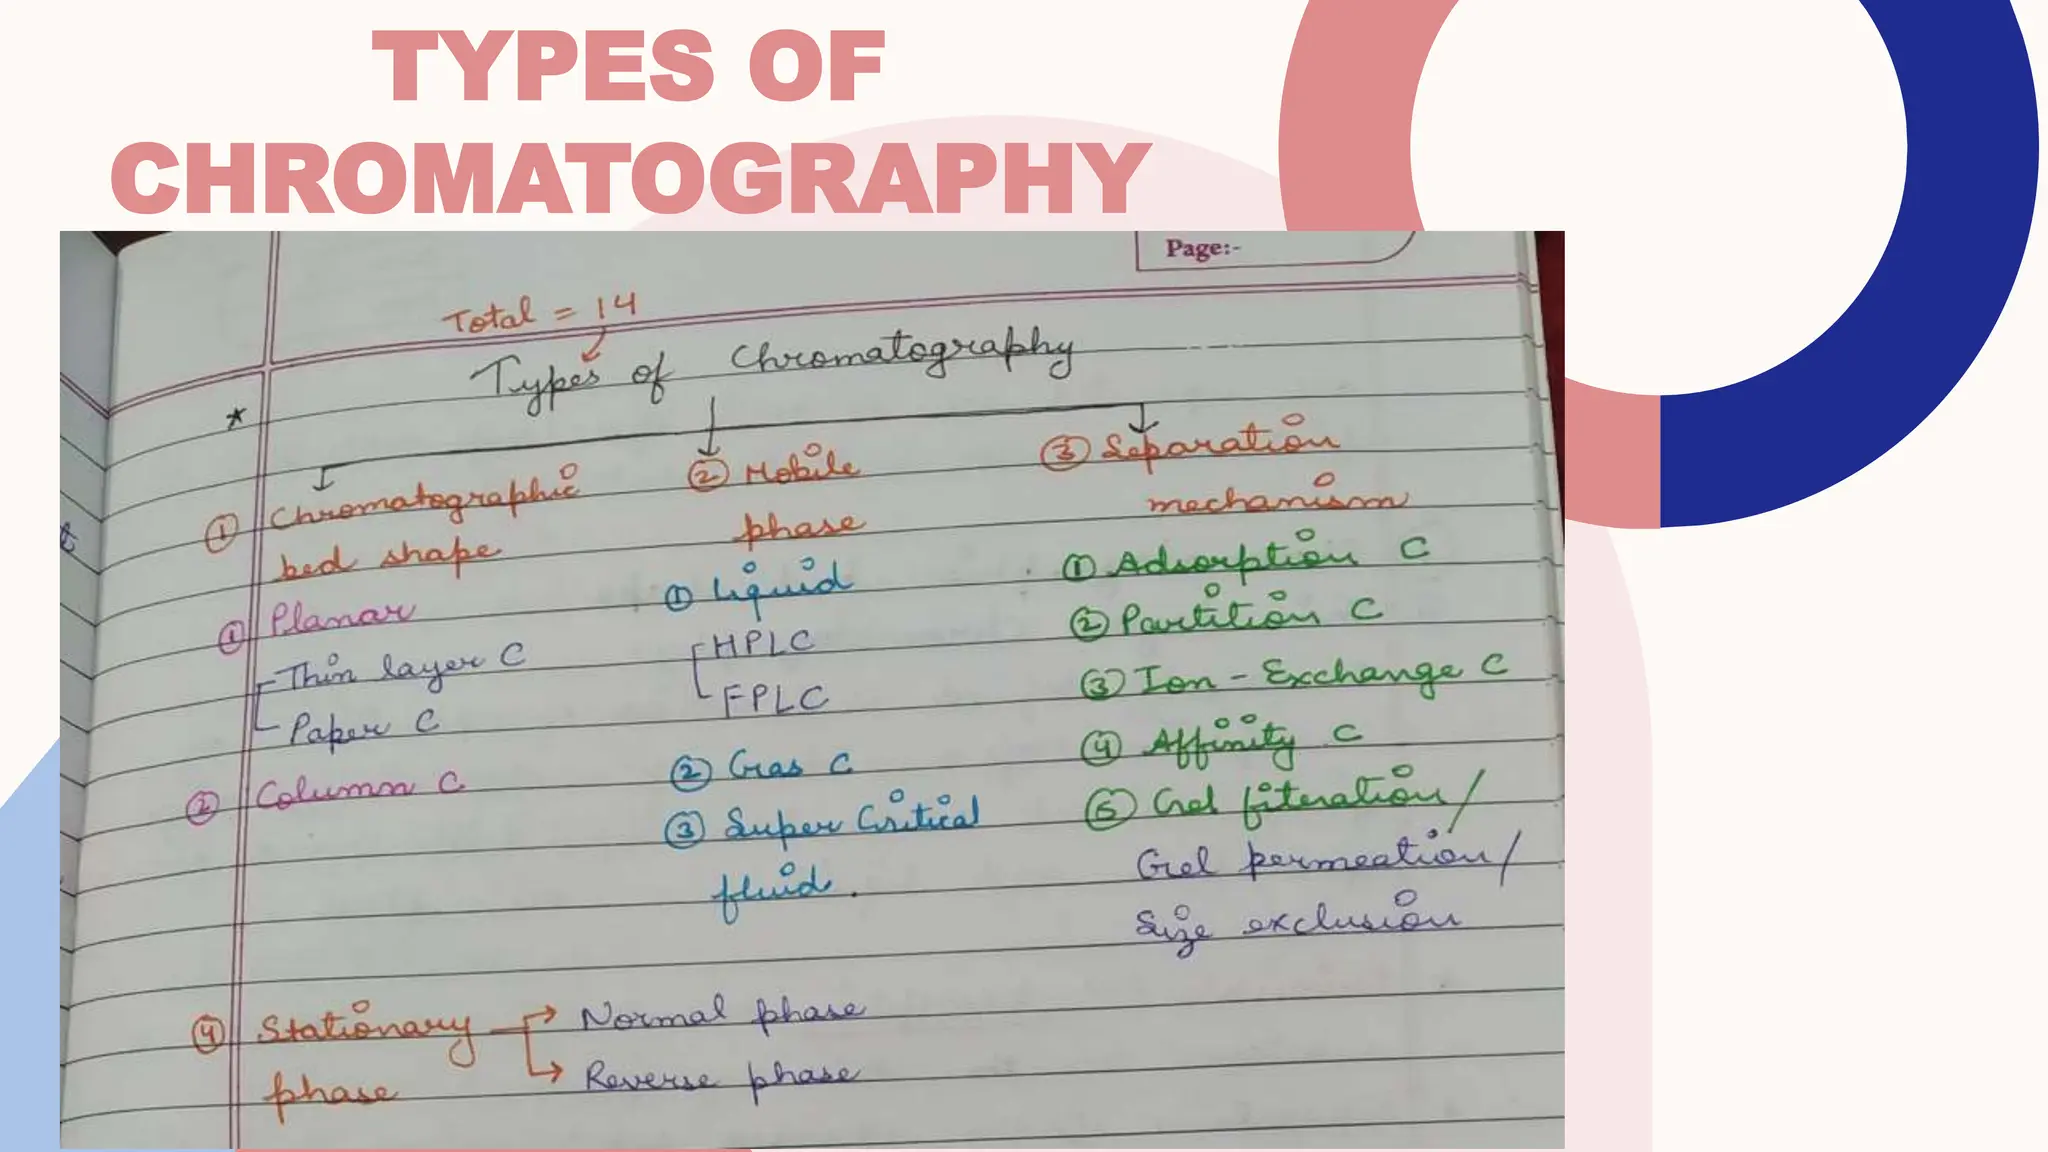 TYPES OF
CHROMATOGRAPHY
Page:-
Total = 14
* Types of Chromatography
① Chromatographic
bed shape
① Planar
Thin layer C
Paper C
② Column C
② Mobile
phase
① Liquid
HPLC
FPLC
② Gas C
③ Super Critical
fluid.
③ Separation
mechanism
① Adsorption C
② Partition C
③ Ion - Exchange C
④ Affinity C
⑤ Gel fiteration/
Gel permeation/
Size exclusion
④ Stationary
phase
→ Normal phase
→ Reverse phase